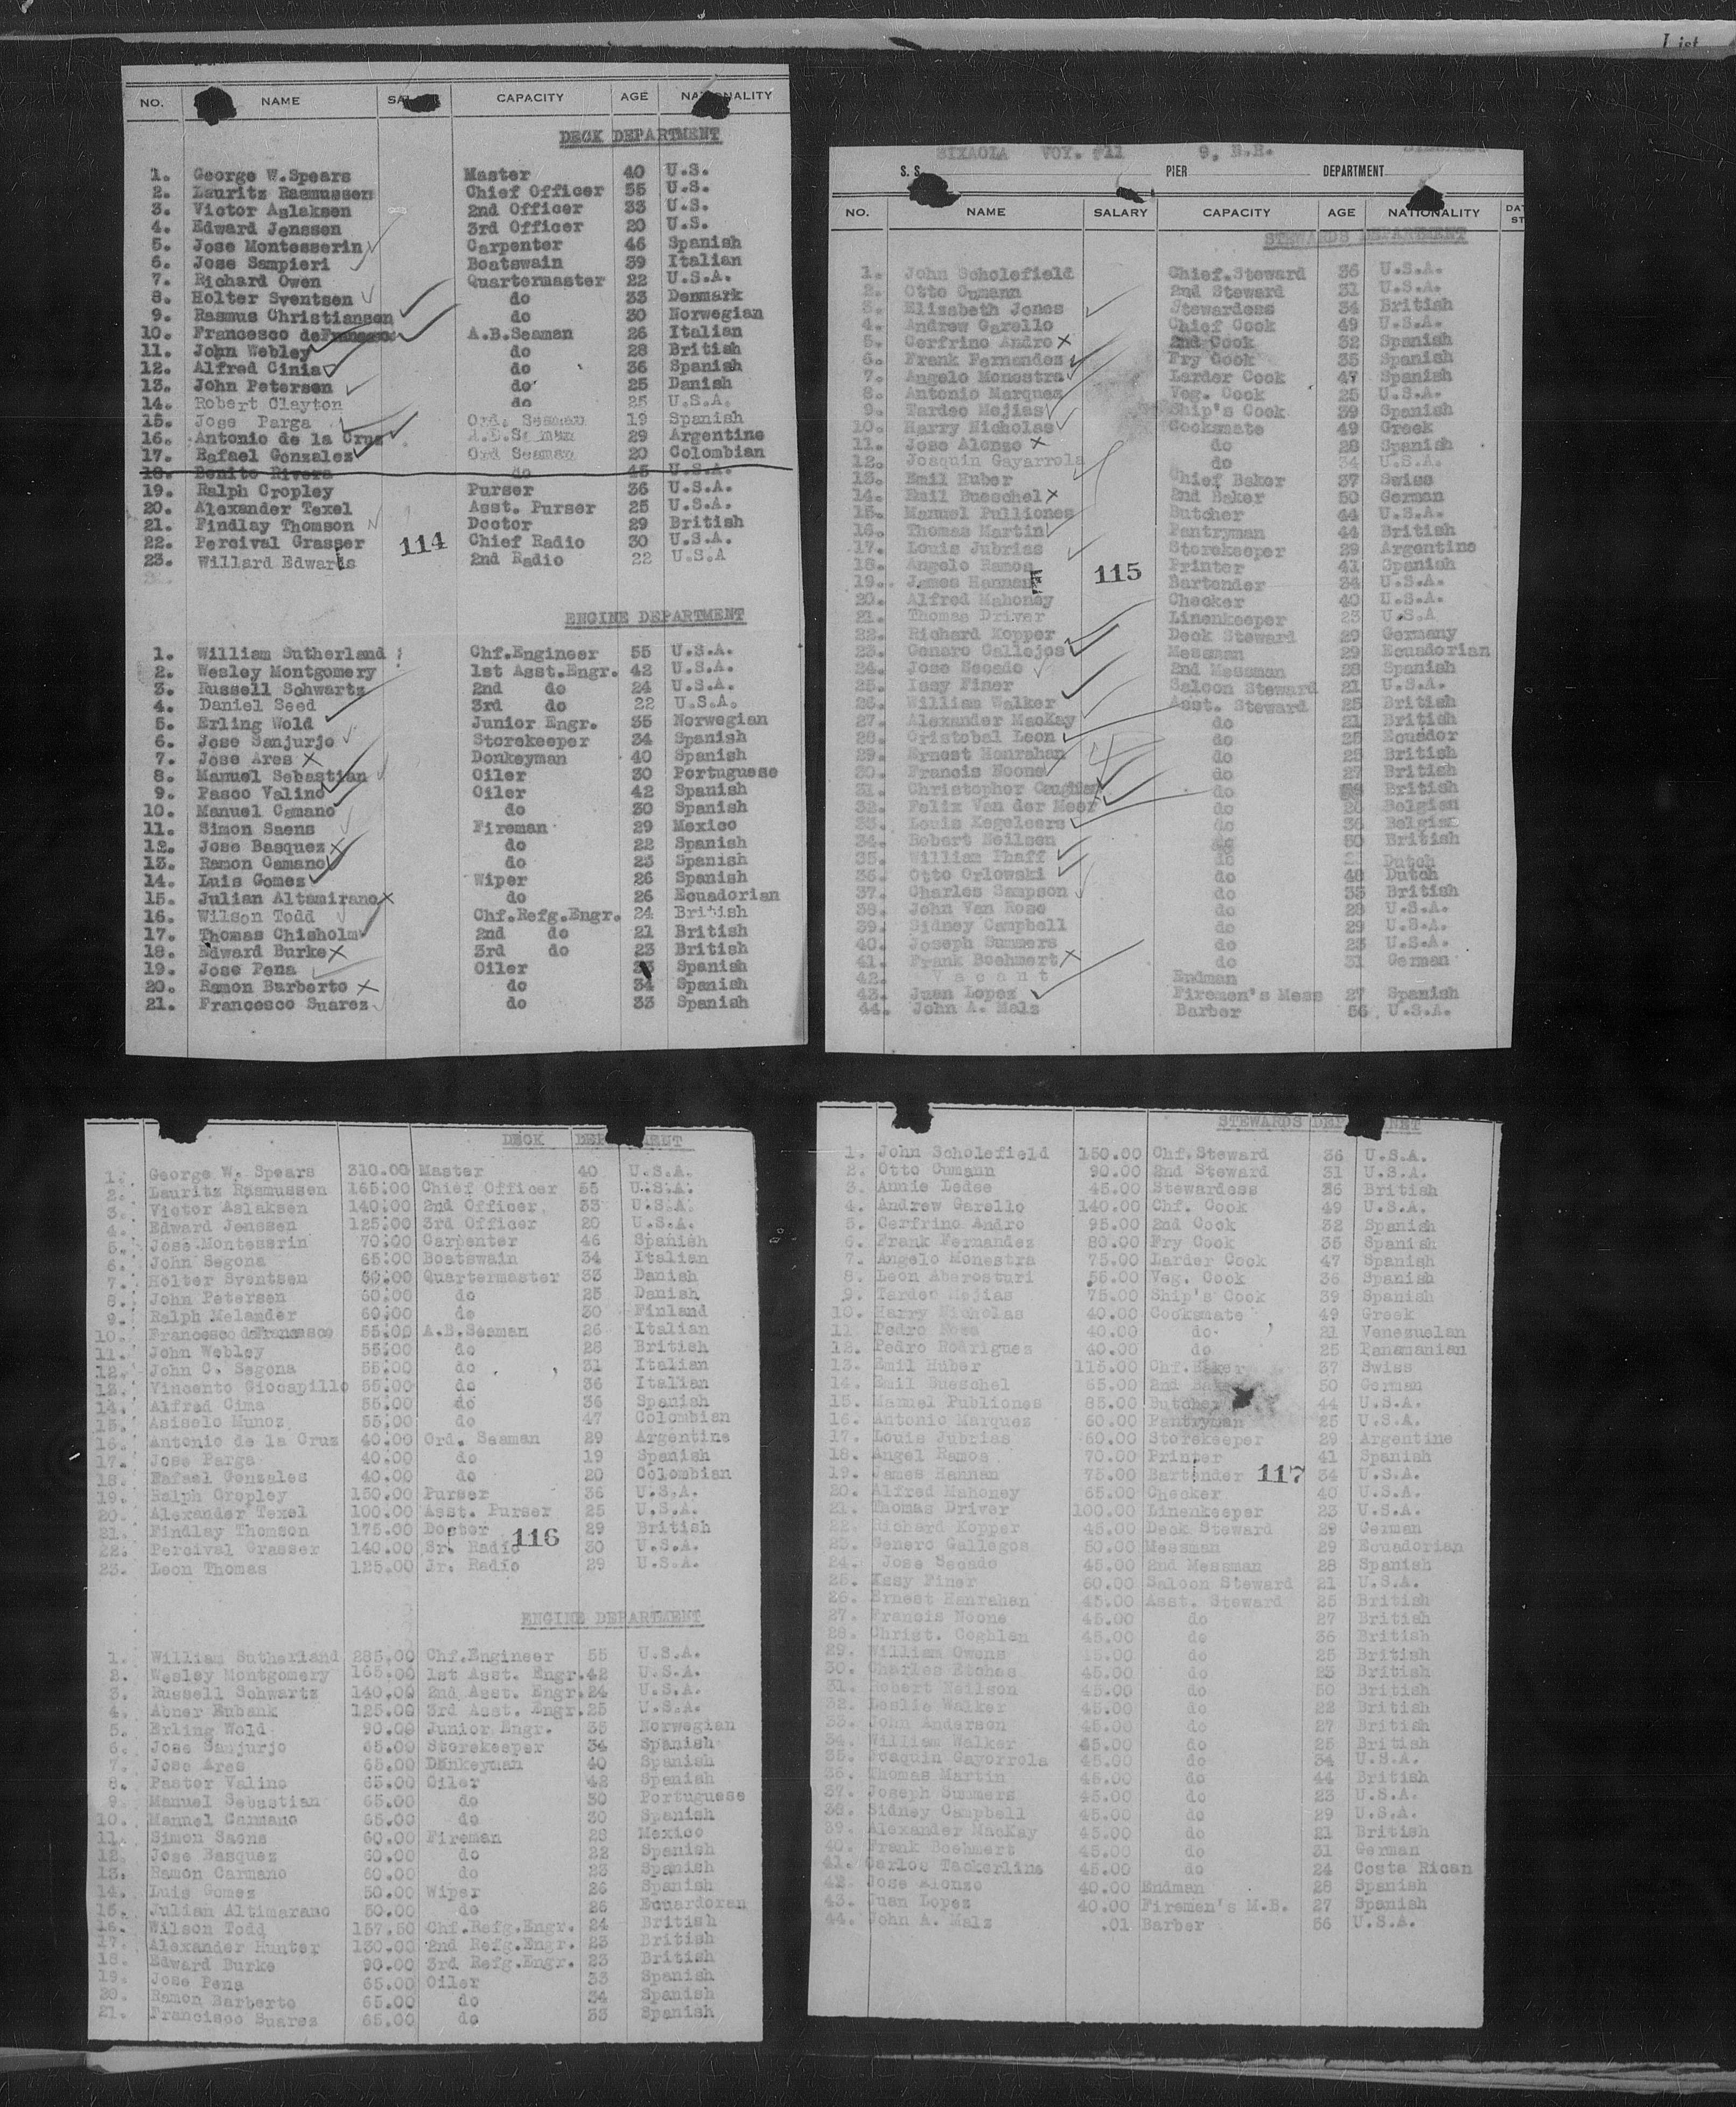 List
NO. NAME CAPACITY AGE NATIONALITY
DECK DEPARTMENT
1. George W.Spears Master 40 U.S.
2. Lauritz Rasmussen Chief Officer 55 U.S.
3. Victor Aslaksen 2nd Officer 33 U.S.
4. Edward Jenssen 3rd Officer 20 U.S.
5. Jose Montesserin Carpenter 46 Spanish
6. Jose Sampieri Boatswain 39 Italian
7. Richard Owen Quartermaster 22 U.S.A.
8. Holter Sventsen do 33 Denmark
9. Rasmus Christiansen do 30 Norwegian
10. Francesco de A.B.Seaman 26 Italian
11. John Webley do 28 British
12. Alfred Cinia do 36 Spanish
13. John Petersen do 25 Danish
14. Robert Clayton do 25 U.S.A.
15. Jose Parga Ord. Seaman 19 Spanish
16. Antonio de la Cruz A.B.Seaman 29 Argentine
17. Rafael Gonzalez Ord Seaman 20 Colombian
18. Benito Rivera do 45 U.S.A.
19. Ralph Cropley Purser 36 U.S.A.
20. Alexander Texel Asst. Purser 25 U.S.A.
21. Findlay Thomson Doctor 29 British
22. Percival Grasser 114 Chief Radio 30 U.S.A.
23. Willard Edwards 2nd Radio 22 U.S.A
ENGINE DEPARTMENT
1. William Sutherland Chf.Engineer 55 U.S.A.
2. Wesley Montgomery 1st Asst.Engr. 42 U.S.A.
3. Russell Schwartz 2nd do 24 U.S.A.
4. Daniel Seed 3rd do 22 U.S.A.
5. Erling Wold Junior Engr. 35 Norwegian
6. Jose Sanjurjo Storekeeper 34 Spanish
7. Jose Ares Donkeyman 40 Spanish
8. Manuel Sebastian Oiler 30 Portuguese
9. Pasco Valino Oiler 42 Spanish
10. Manuel Camano do 30 Spanish
11. Simon Saens Fireman 29 Mexico
12. Jose Basquez do 22 Spanish
13. Ramon Camano do 23 Spanish
14. Luis Gomez Wiper 26 Spanish
15. Julian Altamirano do 26 Ecuadorian
16. Wilson Todd Chf.Refg.Engr. 24 British
17. Thomas Chisholm 2nd do 21 British
18. Edward Burke 3rd do 23 British
19. Jose Pena Oiler Spanish
20. Ramon Barberto do 34 Spanish
21. Francesco Suarez do 33 Spanish
SIXAOLA VOY. #11 9, E.R.
S. S. PIER DEPARTMENT
NO. NAME SALARY CAPACITY AGE NATIONALITY
STEWARDS DEPARTMENT
1. John Scholefield Chief.Steward 36 U.S.A.
2. Otto Cumann 2nd Steward 31 U.S.A.
3. Elizabeth Jones Stewardess 34 British
4. Andrew Garello Chief Cook 49 U.S.A.
5. Cerfrino Andro 2nd Cook 32 Spanish
6. Frank Fernandez Fry Cook 35 Spanish
7. Angelo Monestra Larder Cook 47 Spanish
8. Antonio Marquez Veg. Cook 25 U.S.A.
9. Tardeo Mejias Ship's Cook 39 Spanish
10. Harry Nicholas Cooksmate 49 Greek
11. Jose Alonzo do 28 Spanish
12. Joaquin Gayarrola do 34 U.S.A.
13. Emil Huber Chief Baker 37 Swiss
14. Emil Bueschel 2nd Baker 50 German
15. Manuel Pulliones Butcher 44 U.S.A.
16. Thomas Martin Pantryman 44 British
17. Louis Jubrias Storekeeper 29 Argentine
18. Angelo Ramos Printer 41 Spanish
19. James Hannan 115 Bartender 34 U.S.A.
20. Alfred Mahoney Checker 40 U.S.A.
21. Thomas Driver Linenkeeper 23 U.S.A
22. Richard Kopper Deck Steward 29 Germany
23. Genaro Gallejos Messman 29 Ecuadorian
24. Jose Secado 2nd Messman 28 Spanish
25. Issy Finer Saloon Steward 21 U.S.A.
26. William Walker Asst. Steward 25 British
27. Alexander MacKay do 21 British
28. Cristobal Leon do 25 Ecuador
29. Ernest Hanrahan do 25 British
30. Francis Noone do 27 British
31. Christopher do British
32. Felix Van der Meer do 20 Belgian
33. Louis Kegeleers do 36 Belgian
34. Robert Neilsen do 50 British
35. William Thaff do Dutch
36. Otto Orlowski do 48 Dutch
37. Charles Sampson do 35 British
38. John Van Rose do 28 U.S.A.
39. Sidney Campbell do 29 U.S.A.
40. Joseph Summers do 23 U.S.A.
41. Frank Boehmert do 31 German
42. Vacant Endman
43. Juan Lopez Firemen's Mess 27 Spanish
44. John A. Malz Barber 56 U.S.A.
DECK DEPARTMENT
1. George W. Spears 310.00 Master 40 U.S.A.
2. Lauritz Rasmussen 165.00 Chief Officer 55 U.S.A.
3. Victor Aslaksen 140.00 2nd Officer 33 U.S.A.
4. Edward Jenssen 125.00 3rd Officer 20 U.S.A.
5. Jose Montesrin 70.00 Carpenter 46 Spanish
6. John Segona 65.00 Boatswain 34 Italian
7. Holter Sventsen 60.00 Quartermaster 33 Danish
8. John Petersen 60.00 do 25 Danish
9. Ralph Melander 60.00 do 30 Finland
10. Francesco deFrancesco 55.00 A.B.Seaman 26 Italian
11. John Webley 55.00 do 28 British
12. John C. Segona 55.00 do 31 Italian
13. Vincento Giocapillo 55.00 do 36 Italian
14. Alfred Cima 55.00 do 36 Spanish
15. Asiselo Munoz 55.00 do 47 Colombian
16. Antonio de la Cruz 40.00 Ord. Seaman 29 Argentine
17. Jose Parga 40.00 do 19 Spanish
18. Rafael Gonzales 40.00 do 20 Colombian
19. Ralph Cropley 150.00 Purser 36 U.S.A.
20. Alexander Texel 100.00 Asst. Purser 25 U.S.A.
21. Findlay Thomson 175.00 Doctor 116 29 British
22. Percival Grasser 140.00 Sr. Radio 30 U.S.A.
23. Leon Thomas 125.00 Jr. Radio 29 U.S.A.
ENGINE DEPARTMENT
1. William Sutherland 285.00 Chf.Engineer 55 U.S.A.
2. Wesley Montgomery 165.00 1st Asst. Engr. 42 U.S.A.
3. Russell Schwartz 140.00 2nd Asst. Engr. 24 U.S.A.
4. Abner Eubank 125.00 3rd Asst. Engr. 25 U.S.A.
5. Erling Wold 90.00 Junior Engr. 35 Norwegian
6. Jose Sanjurjo 65.00 Storekeeper 34 Spanish
7. Jose Ares 65.00 Donkeyman 40 Spanish
8. Pastor Valino 65.00 Oiler 42 Spanish
9. Manuel Sebastian 65.00 do 30 Portuguese
10. Mannel Carmano 65.00 do 30 Spanish
11. Simon Saens 60.00 Fireman 29 Mexico
12. Jose Basquez 60.00 do 22 Spanish
13. Ramon Carmano 60.00 do 23 Spanish
14. Luis Gomez 50.00 Wiper 26 Spanish
15. Julian Altimarano 50.00 do 26 Ecuardoran
16. Wilson Todd 157.50 Chf.Refg.Engr. 24 British
17. Alexander Hunter 130.00 2nd Refg.Engr. 23 British
18. Edward Burke 90.00 3rd Refg.Engr. 23 British
19. Jose Pena 65.00 Oiler 33 Spanish
20. Ramon Barberto 65.00 do 34 Spanish
21. Francisco Suarez 65.00 do 33 Spanish
STEWARDS
1. John Scholefield 150.00 Chf.Steward 36 U.S.A.
2. Otto Cumann 90.00 2nd Steward 31 U.S.A.
3. Annie Ledse 45.00 Stewardess 36 British
4. Andrew Garello 140.00 Chf. Cook 49 U.S.A.
5. Cerfrino Andro 95.00 2nd Cook 32 Spanish
6. Frank Fernandez 80.00 Fry Cook 35 Spanish
7. Angelo Monestra 75.00 Larder Cook 47 Spanish
8. Leon Aberosturi 55.00 Veg. Cook 36 Spanish
9. Tardeo Mejias 75.00 Ship's Cook 39 Spanish
10. Harry Nicholas 40.00 Cooksmate 49 Greek
11 Pedro 40.00 do 21 Venezuelan
12. Pedro Rodrigues 40.00 do 25 Panamanian
13. Emil Huber 115.00 Chf.Baker 37 Swiss
14. Emil Bueschel 65.00 2nd Baker 50 German
15. Manuel Publiones 85.00 Butcher 44 U.S.A.
16. Antonio Marquez 60.00 Pantryman 25 U.S.A.
17. Louis Jubrias 60.00 Storekeeper 29 Argentine
18. Angel Ramos 70.00 Printer 41 Spanish
19. James Hannan 75.00 Bartender 117 34 U.S.A.
20. Alfred Mahoney 65.00 Checker 40 U.S.A.
21. Thomas Driver 100.00 Linenkeeper 23 U.S.A.
22. Richard Kopper 45.00 Deck Steward 29 German
23. Genero Gallegos 50.00 Messman 29 Ecuadorian
24. Jose Secado 45.00 2nd Messman 28 Spanish
25. Issy Finer 60.00 Saloon Steward 21 U.S.A.
26. Ernest Hanrahan 45.00 Asst. Steward 25 British
27. Francis Noone 45.00 do 27 British
28. Christ. Coghlan 45.00 do 36 British
29. William Owens 45.00 do 25 British
30. Charles Etches 45.00 do 23 British
31. Robert Neilson 45.00 do 50 British
32. Leslie Walker 45.00 do 22 British
33. John Anderson 45.00 do 27 British
34. William Walker 45.00 do 25 British
35. Joaquin Gayorrola 45.00 do 34 U.S.A.
36. Thomas Martin 45.00 do 44 British
37. Joseph Summers 45.00 do 23 U.S.A.
38. Sidney Campbell 45.00 do 29 U.S.A.
39. Alexander MacKay 45.00 do 21 British
40. Frank Boehmert 45.00 do 31 German
41. Carlos Tackerline 45.00 do 24 Costa Rican
42. Jose Alonzo 40.00 Endman 28 Spanish
43. Juan Lopez 40.00 Firemen's M.B. 27 Spanish
44. John A. Malz .01 Barber 56 U.S.A.